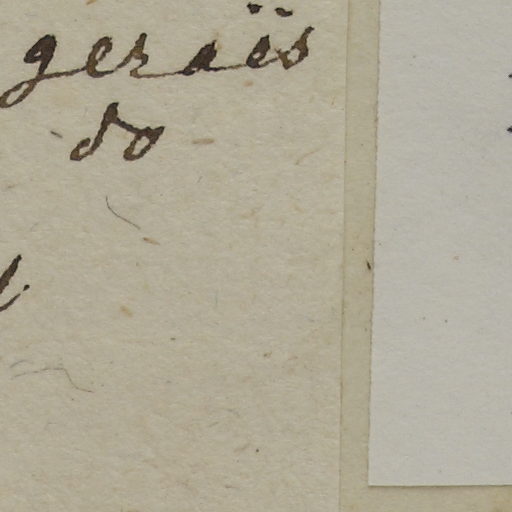 geraës
- do -